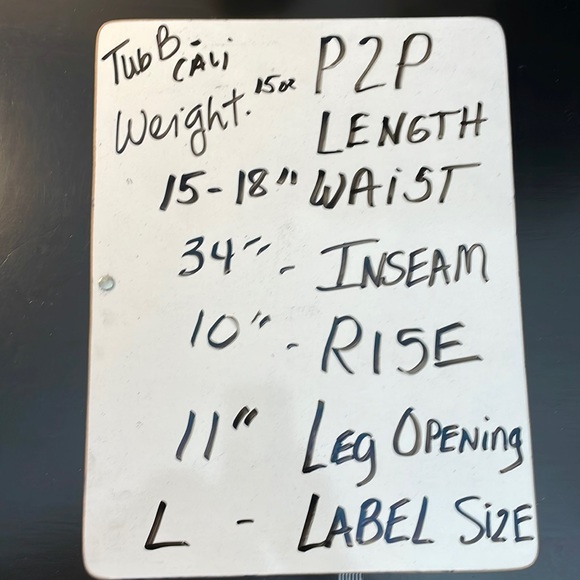 TubB - CALi
Weight. 15oz
P2P
LENGTH
15-18" WAiST
34" - INSEAM
10" - RISE
11" Leg OPENing
L - LABEL SiZE